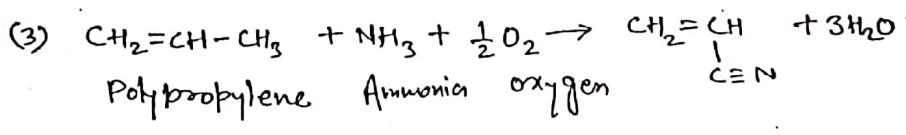 (3) CH₂=CH-CH₃ + NH₃ + ½ O₂ → CH₂=CH + 3H₂O
|
C≡N
Polypropylene Ammonia oxygen